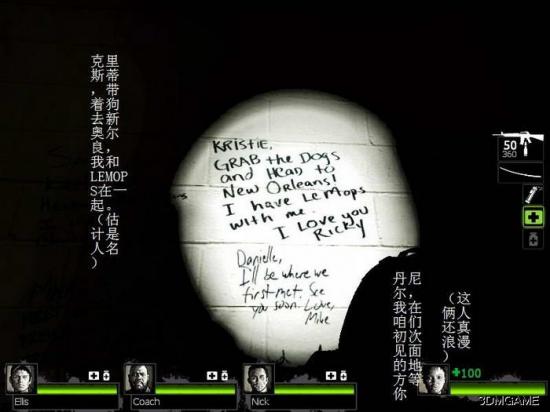 克里斯蒂，带着狗去新奥尔良，我和LEMOPS在一起。（估计是人名）
KRISTIE,
GRAB the DOGS
and HEAD to
NEW ORLEANS!
I have LeMops
with me.
I Love you
Ricky
Danielle,
I'll be where we
first met. See
you soon. Love,
Mike
丹尼尔，我在咱们初次见面的地方等你
（这俩人还真浪漫）
50
360
+100
Ellis
Coach
Nick
3DMGAME